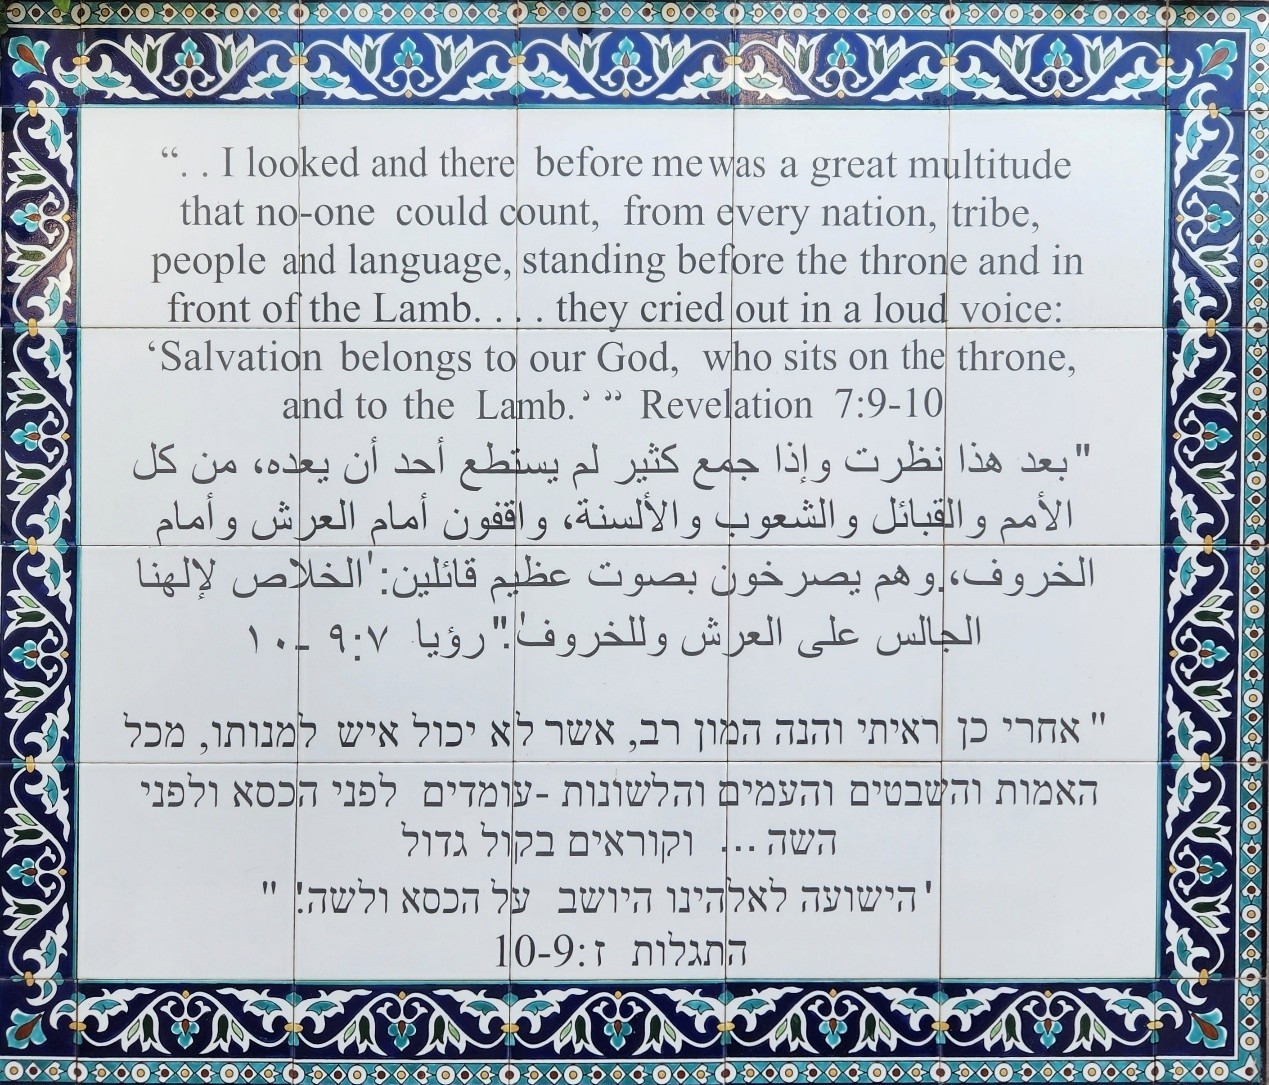 “. . I looked and there before me was a great multitude
that no-one could count, from every nation, tribe,
people and language, standing before the throne and in
front of the Lamb. . . . they cried out in a loud voice:
‘Salvation belongs to our God, who sits on the throne,
and to the Lamb.’ ” Revelation 7:9-10
"بعد هذا نظرت وإذا جمع كثير لم يستطع أحد أن يعده، من كل
الأمم والقبائل والشعوب والألسنة، واقفون أمام العرش وأمام
الخروف،.وهم يصرخون بصوت عظيم قائلين:'الخلاص لإلهنا
الجالس على العرش وللخروف'." رؤيا ٩:٧ -١٠
"אחרי כן ראיתי והנה המון רב, אשר לא יכול איש למנותו, מכל
האמות והשבטים והעמים והלשונות -עומדים לפני הכסא ולפני
השה ... וקוראים בקול גדול
'הישועה לאלהינו היושב על הכסא ולשה.' "
התגלות ז:10-9